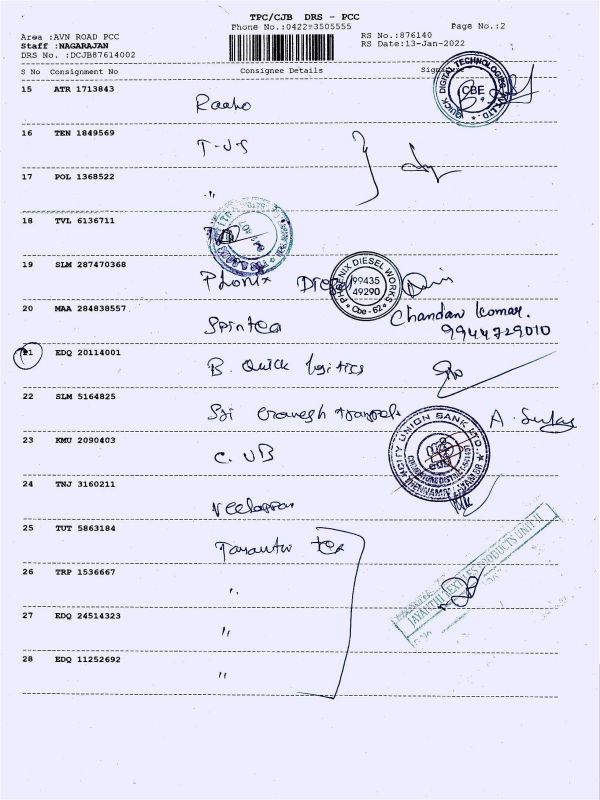 TPC/CJB DRS - PCC
Phone No.:0422-3505555 Page No.:2
Area :AVN ROAD PCC RS No.:876140
Staff :NAGARAJAN RS Date:13-Jan-2022
DRS No. :DCJB87614002
S No Consignment No Consignee Details Signature
15 ATR 1713843
QUICK DIGITAL TECHNOLOGIES PVT.LTD.
CBE
16 TEN 1849569
T-JS
17 POL 1368522
"
18 TVL 6136711
19 SLM 287470368
Phonix Diesel
PHOENIX DIESEL WORKS
99435
49290
Cbe - 62
20 MAA 284838557
Chandan Komar.
9944729010
21 EDQ 20114001
B. Quick logitics
22 SLM 5164825
Sri
23 KMU 2090403
C. UB
CITY UNION BANK LTD.
24 TNJ 3160211
25 TUT 5863184
Tex
JAYANTHI TEXTILES PRODUCTS UNIT II
26 TRP 1536667
"
27 EDQ 24514323
"
28 EDQ 11252692
"